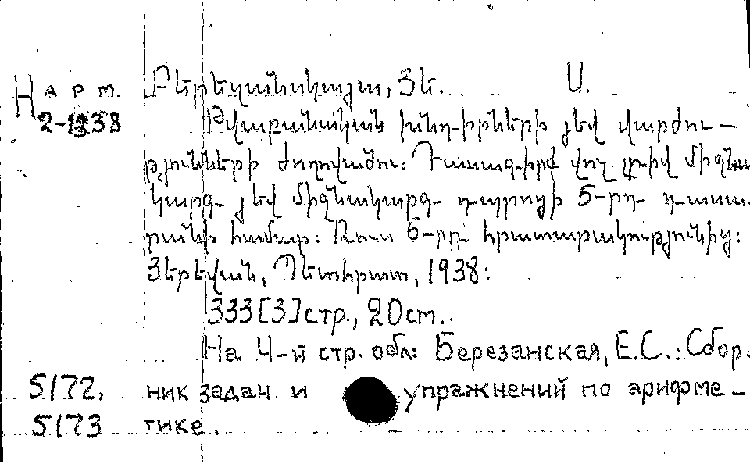 Բերեզանսկայա, Յե. Ս.
Н а р т.
2-1938
Թվաբանական խնդիրների յեվ վարժու-
թյունների ժողովածու: Դասագիրք վոչ լրիվ միջնա
կարգ յեվ միջնակարգ դպրոցի 5-րդ դասա-
րանի համար: Ռուս 6-րդ հրատարակությունից:
Յերեվան, Պետհրատ, 1938:
333[3]стр., 20см..
На 4-й стр. обл: Березанская, Е.С.: Сбор.
5172. ник задач и упражнений по арифме-
5173 тике.